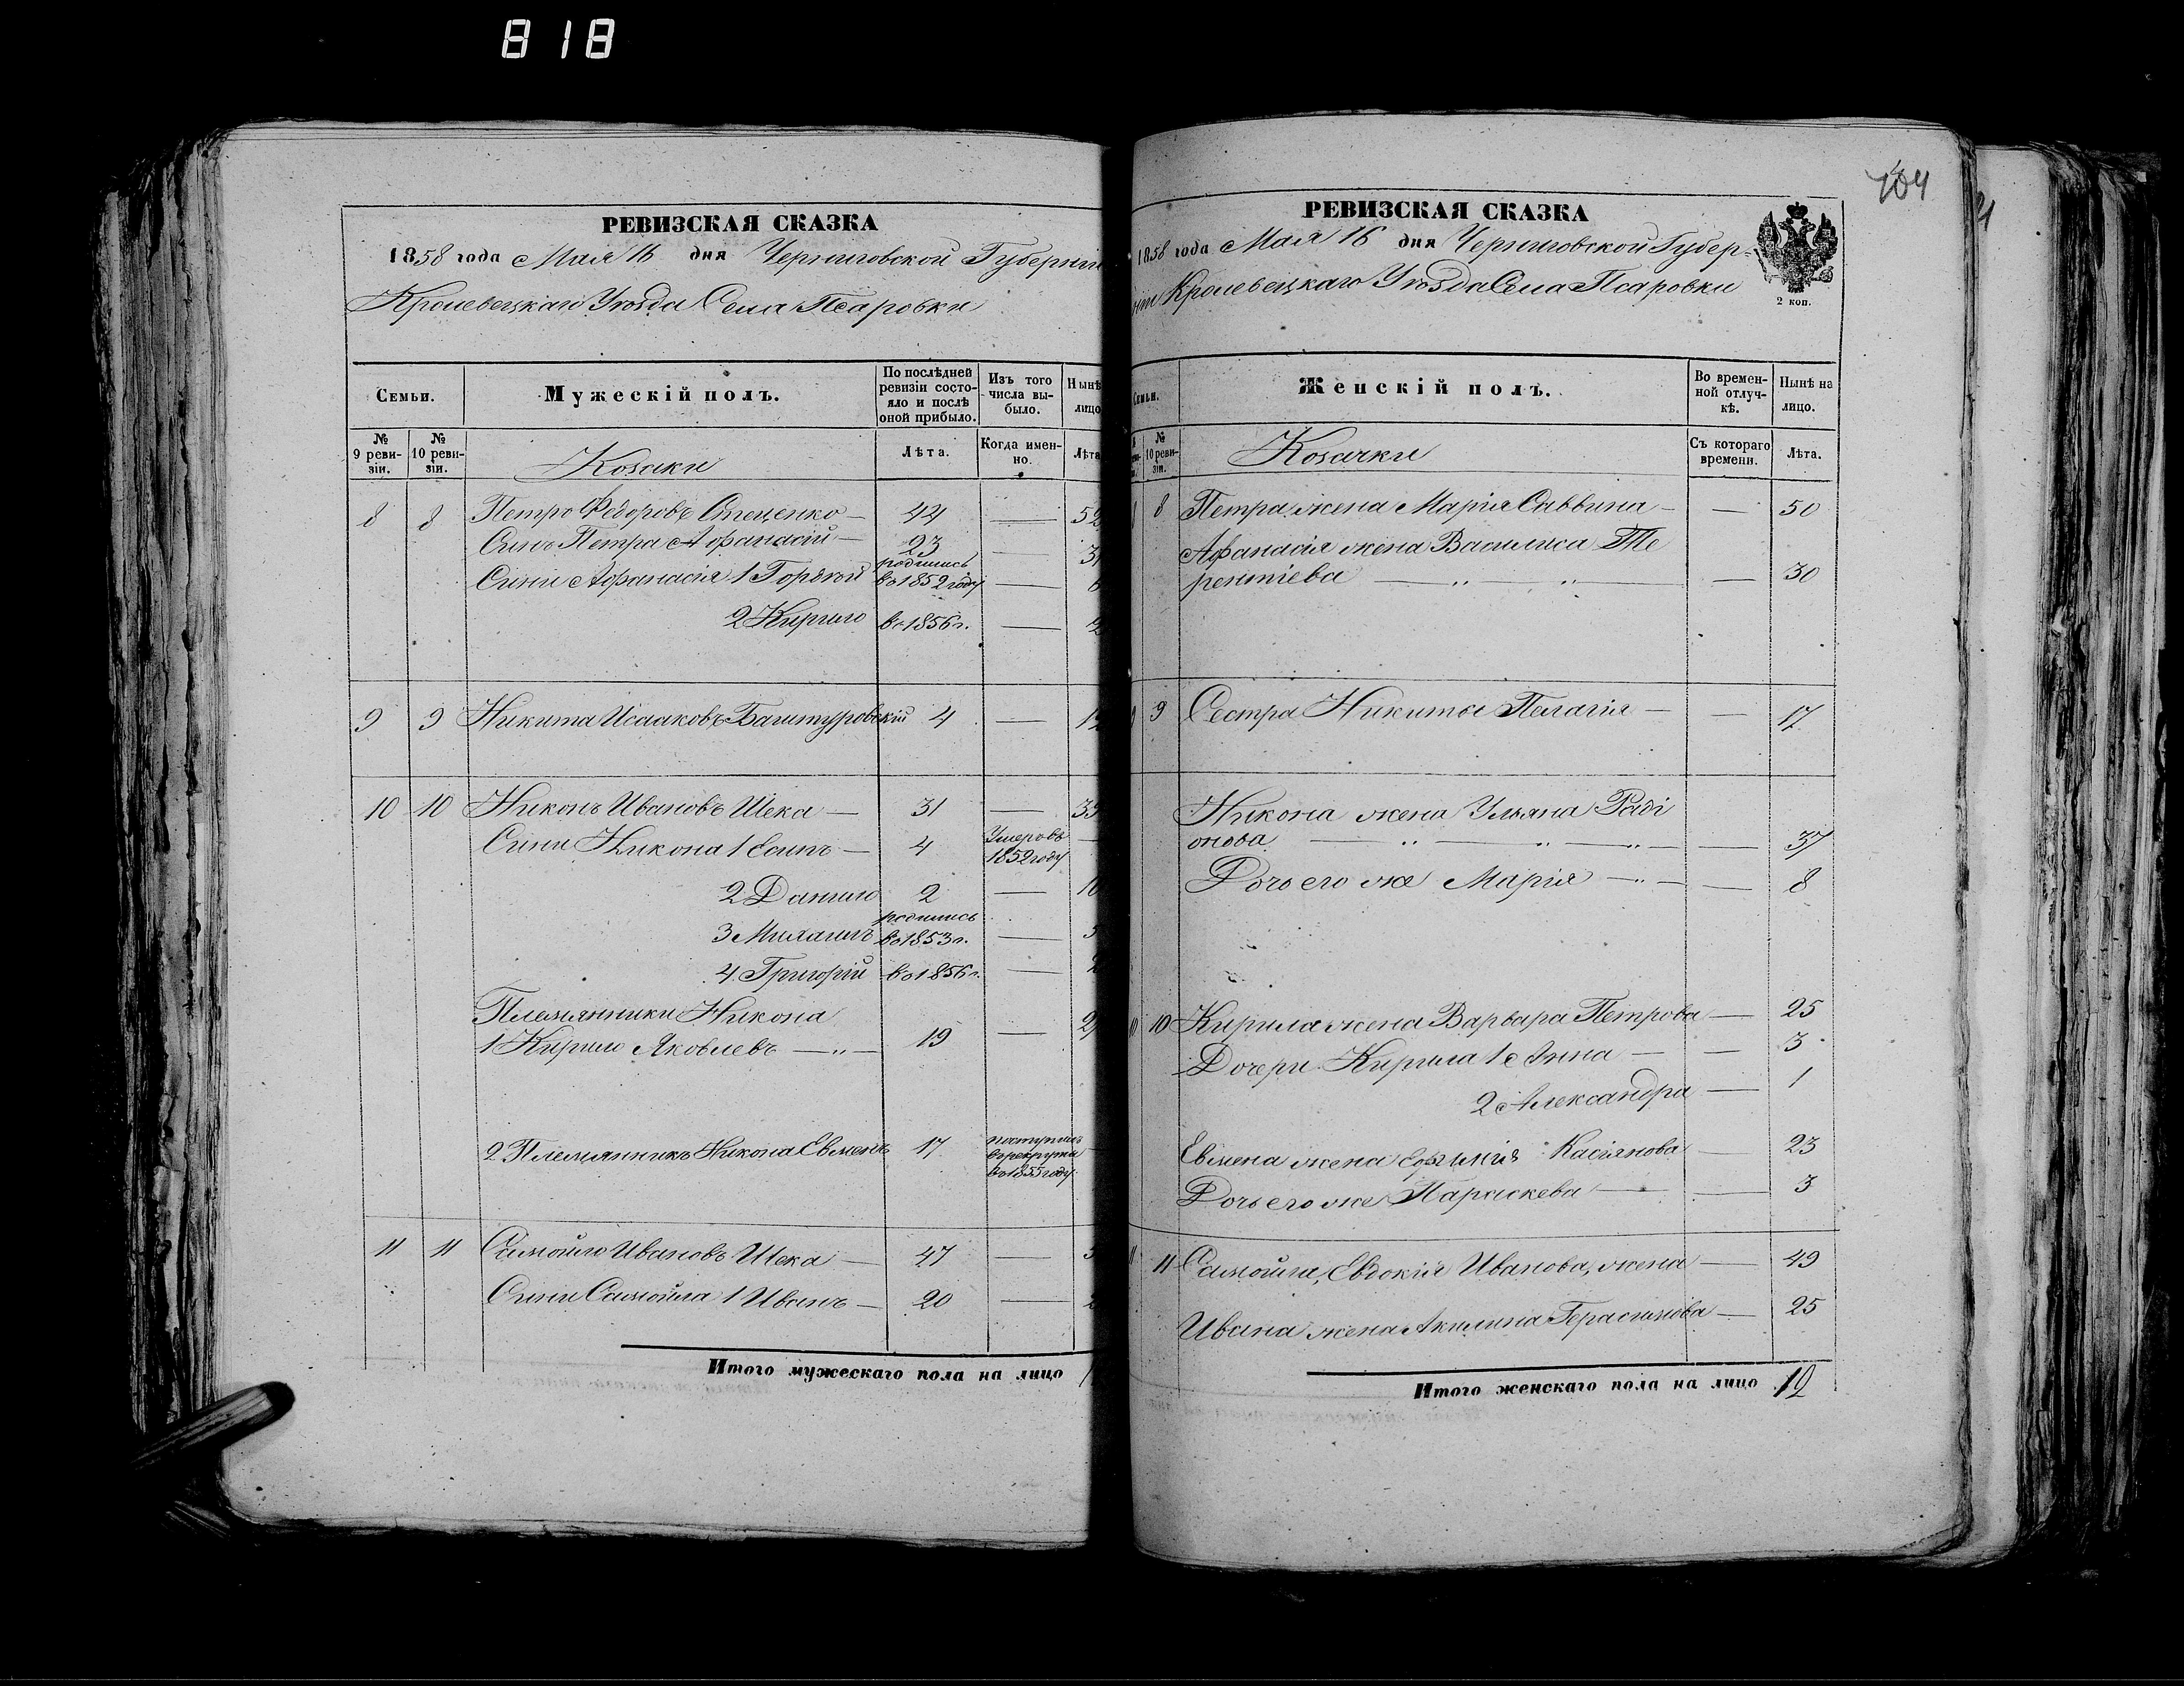 818
РЕВИЗСКАЯ СКАЗКА
1858 года Мая 16 дня Черниговской Губерніи
Кролевецкаго Уѣзда Села Псаровки
Семьи.
Мужескій полъ.
По послѣдней ревизіи состояло и послѣ оной прибыло.
Изъ того числа выбыло.
Нынѣ
лицо
№ 9 ревизіи.
№ 10 ревизіи.
Козаки
Лѣта.
Когда именно.
Лѣта
8 8 Петро Федоровъ Стеценко — 44 — 52
Синъ Петра Афанасій — 23 — 31
Сини Афанасія 1 Гордѣй родились во 1852 году — 6
2 Кирило во 1856 г. — 2
9 9 Никита Исааковъ Багитуровскій 4 — 12
10 10 Никонъ Ивановъ Шека — 31 — 39
Сини Никона 1 Есипъ — 4 Умеръ въ 1852 году —
2 Данило 2 — 10
3 родились во 1853 г. — 5
4 Григорій во 1856 г. — 2
Племянники Никона
1 Кирило Яковлевъ — „ — 19 — 27
2 Племянникъ Никона Евменъ 17 поступилъ в рекрута во 1855 году
11 11 Самойло Ивановъ Шека — 47 —
Сини Самойла 1 Иванъ — 20 — 2
Итого мужескаго пола на лицо 1
104
РЕВИЗСКАЯ СКАЗКА
1858 года Мая 16 дня Черниговской Губер-
ніи Кролевецкаго Уѣзда Села Псаровки
2 коп.
Семьи.
Женскій полъ.
Во временной отлучкѣ.
Нынѣ на лицо.
№ 10 ревизіи.
Козачки
Съ котораго времени.
Лѣта.
8 8 Петра жена Марія Саввина — — 50
Афанасія жена Василиса Те
рентіева — „ „ — 30
9 9 Сестра Никиты Пелагія — — 17
Никона жена Ульяна Раді
онова — „ — „ — „ — — 37
Дочь его же Марія — „ — — 8
10 10 Кирила жена Варвара Петрова — 25
Дочери Кирила 1 Анна — — 3
2 Александра — 1
Евмена жена Ефимія Касіянова — 23
Дочь его же Параскева — — 3
11 11 Самойла, Евдокія Иванова, жена — 49
Ивана жена Акилина Герасимова — 25
Итого женскаго пола на лицо 12